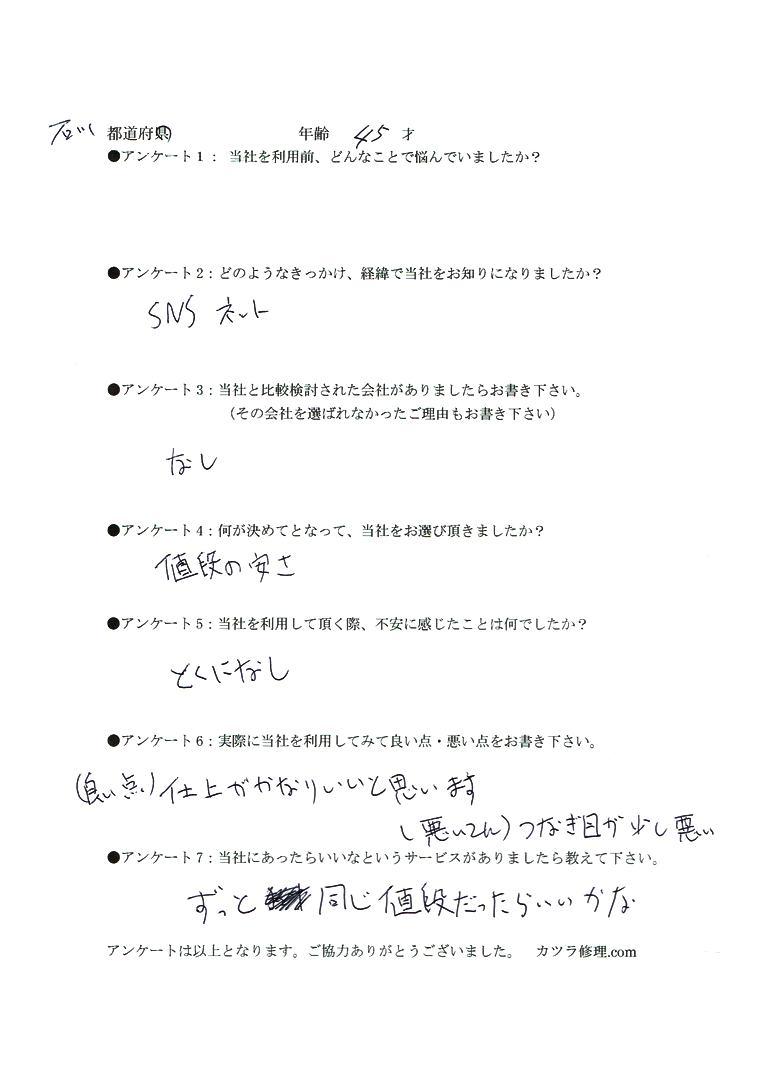 石川 都道府県 年齢 45 才
●アンケート1： 当社を利用前、どんなことで悩んでいましたか？
●アンケート2：どのようなきっかけ、経緯で当社をお知りになりましたか？
SNS ネット
●アンケート3：当社と比較検討された会社がありましたらお書き下さい。
（その会社を選ばれなかったご理由もお書き下さい）
なし
●アンケート4：何が決めてとなって、当社をお選び頂きましたか？
値段の安さ
●アンケート5：当社を利用して頂く際、不安に感じたことは何でしたか？
とくになし
●アンケート6：実際に当社を利用してみて良い点・悪い点をお書き下さい。
(良い点)仕上ががかなりいいと思います
(悪いてん)つなぎ目が少し悪い
●アンケート7：当社にあったらいいなというサービスがありましたら教えて下さい。
ずっと 同じ値段だったらいいかな
アンケートは以上となります。ご協力ありがとうございました。 カツラ修理.com